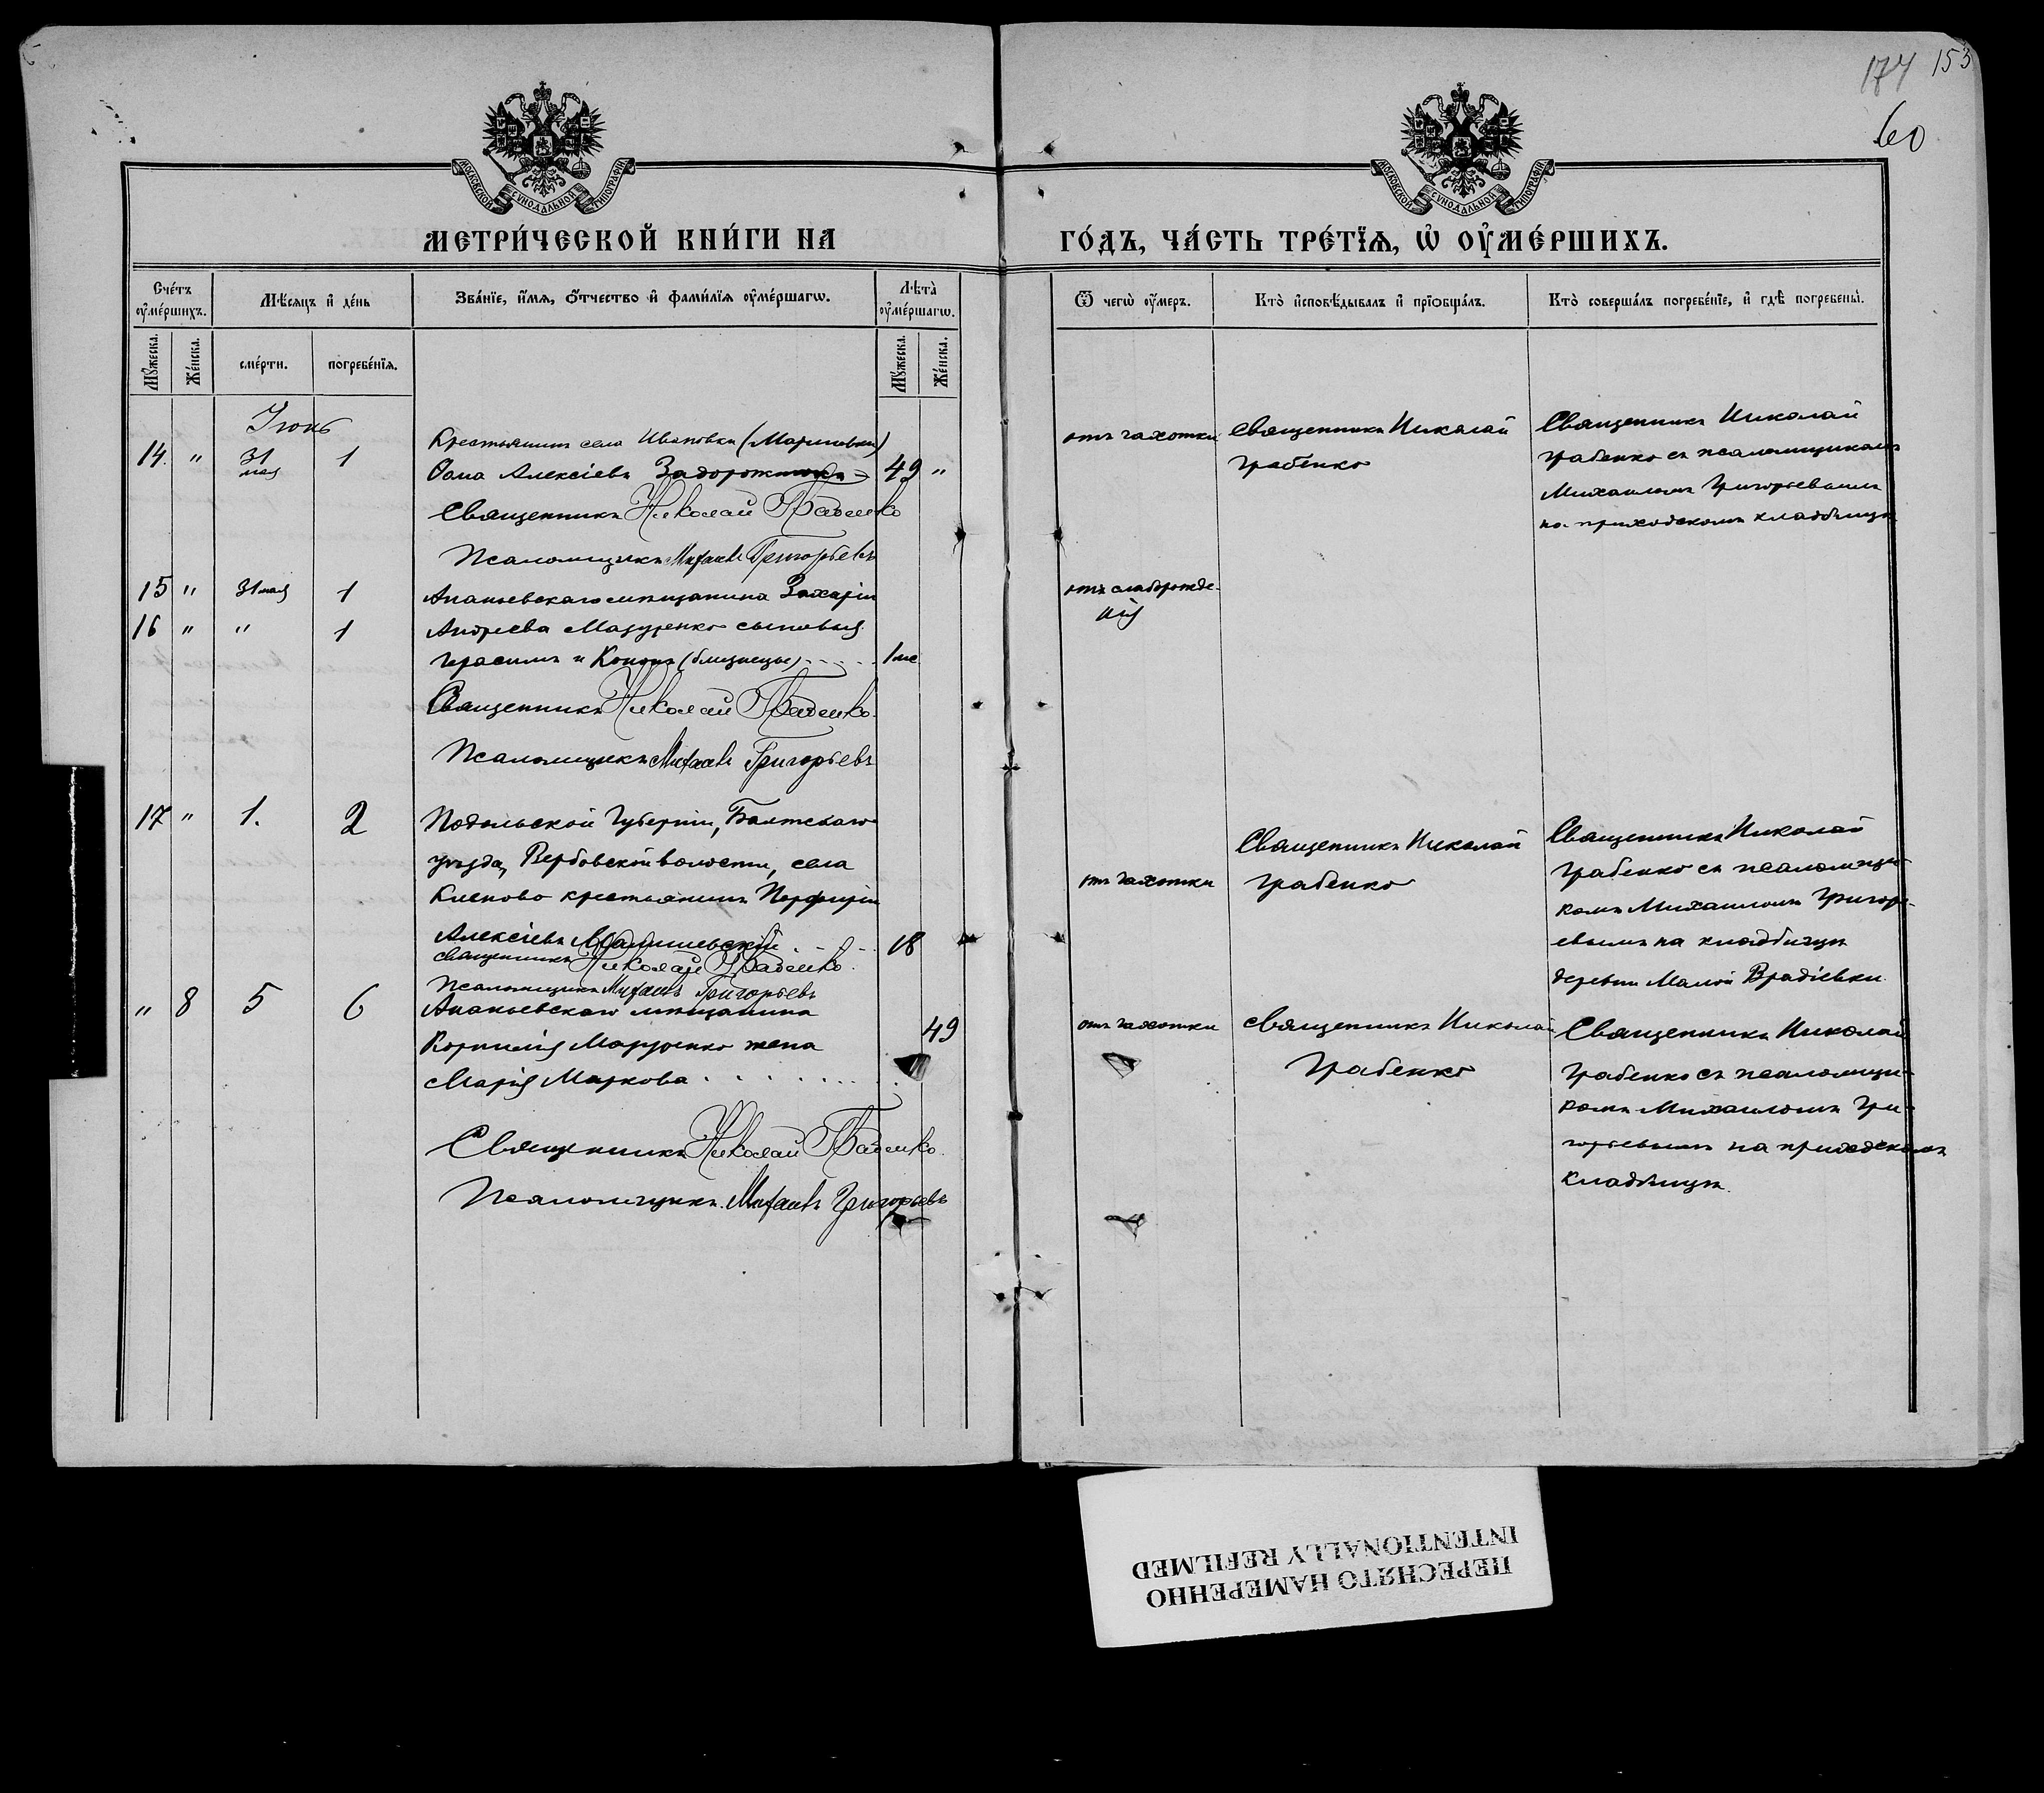 174 153
60
МОСКОВСКОЙ СѴНОДАЛЬНОЙ ТИПОГРАФІИ
МОСКОВСКОЙ СѴНОДАЛЬНОЙ ТИПОГРАФІИ
МЕТРИ́ЧЕСКОЙ КНИ́ГИ НА
ГО́ДЪ, ЧА́СТЬ ТРЕ́ТЇѦ, Ѡ҆ ОУ҆МЕ́РШИХЪ.
Сче́тъ оу҆ме́ршихъ.
Мѣ́сѧцъ и҆ де́нь
Зва́нїе, и҆́мѧ, ѻ҆́тчество и҆ фами́лїѧ оу҆ме́ршагѡ.
Лѣта̀ оу҆ме́ршагѡ.
Ѿ чегѡ̀ оу҆́меръ.
Кто̀ и҆сповѣ́дывалъ и҆ прїѡбща́лъ.
Кто̀ соверша́лъ погребе́нїе, и҆ гдѣ̀ погребены̀.
Мꙋ́жеска.
Же́нска.
сме́рти.
погребе́нїѧ.
Мꙋ́жеска.
Же́нска.
Іюнь
14. " 31 мая 1
Крестьянинъ села Ивановки (Мариновки)
Ѳома Алексіевъ 49 "
Священникъ Николай Грабенко
Псаломщикъ Михаилъ Григорьевъ
отъ чахотки
Священникъ Николай
Грабенко
Священникъ Николай
Грабенко съ псаломщикомъ
Михаиломъ Григорьевымъ
на приходскомъ кладбищѣ
15 " 31 мая 1
Ананьевскаго мѣщанина Захарія
16 " " 1
Андреева Мазуренко сыновья
Герасимъ и Кононъ (близнецы) . . . . . 1 мѣ
Священникъ Николай Грабенко.
Псаломщикъ Михаилъ Григорьевъ
отъ слаборожде-
нія
17 " 1. 2
Подольской Губерніи, Балтскаго
уѣзда, Вербовской волости, села
Кленово крестьянинъ Порфирій
Алексіевъ 18
Священникъ Николай Грабенко.
Псаломщикъ Михаилъ Григорьевъ
отъ чахотки
Священникъ Николай
Грабенко
Священникъ Николай
Грабенко съ псаломщи-
комъ Михаиломъ Григорь-
евымъ на кладбищѣ
деревни Малой Врадіевки.
" 8 5 6
Ананьевскаго мѣщанина
Корнилія жена 49
Марія Маркова . . . . . . . . .
Священникъ Николай Грабенко.
Псаломщикъ Михаилъ Григорьевъ
отъ чахотки
Священникъ Николай
Грабенко
Священникъ Николай
Грабенко съ псаломщи-
комъ Михаиломъ Гри-
горьевымъ на приходскомъ
кладбищѣ.
ПЕРЕСНЯТО НАМЕРЕННО
INTENTIONALLY REFILMED